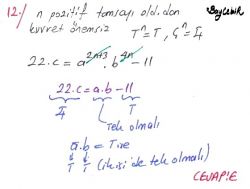 12.) n pozitif tamsayı old.dan
kuvvet önemsiz Tⁿ=T, Çⁿ=Ç
22.c = a²ⁿ⁺³ . b⁴ⁿ - 11
22.c = a.b - 11
Ç T
Tek olmalı
a.b = T ise
T T (ikisi de tek olmalı)
CEVAP:E